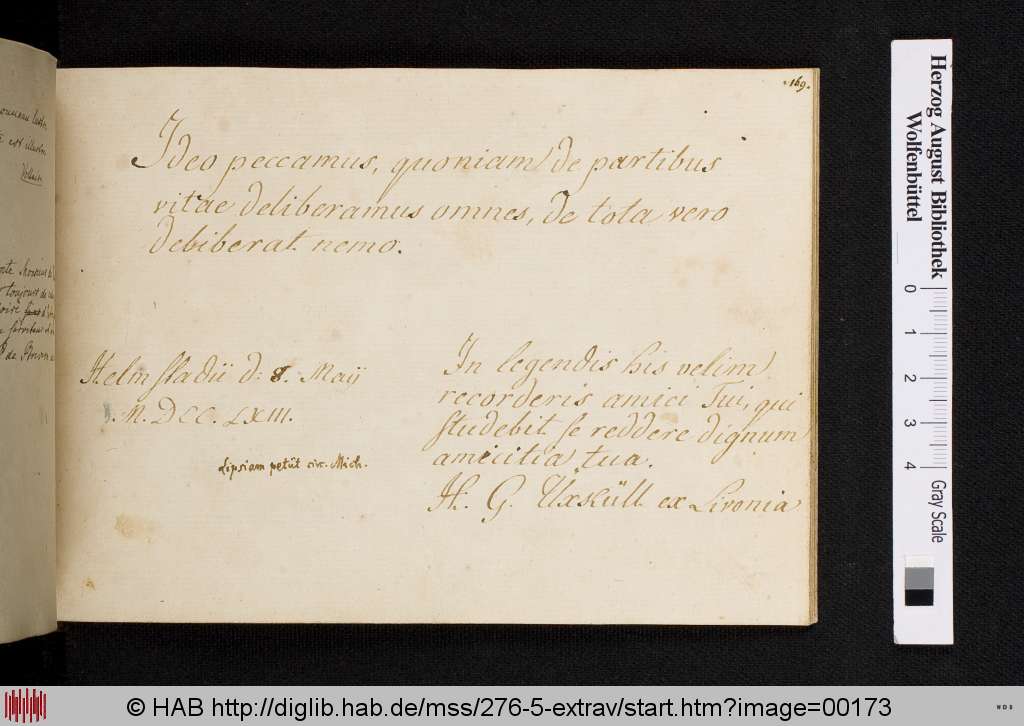 .169.
Ideo peccamus, quoniam de partibus
vitae deliberamus omnes, de tota vero
debiberat nemo.
Helmstadii d: 8. Maij
M. DCC. LXIII.
Lipsiam petiit circ. Mich.
In legendis his velim
recorderis amici Tui, qui
studebit se reddere dignum
amicitia tua.
H. G. Üxküll ex Livonia
toujours de
Herzog August Bibliothek
Wolfenbüttel
0 1 2 3 4
Gray Scale
© HAB http://diglib.hab.de/mss/276-5-extrav/start.htm?image=00173
WDB